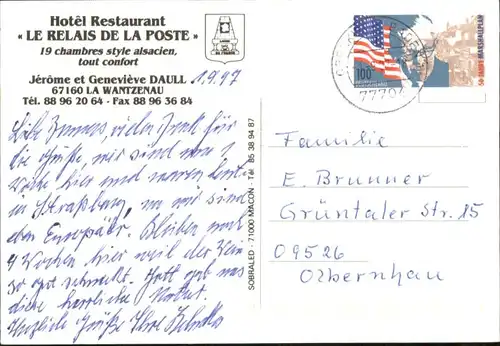 Hotêl Restaurant
« LE RELAIS DE LA POSTE »
19 chambres style alsacien,
tout confort
Jérôme et Geneviève DAULL
67160 LA WANTZENAU
Tél. 88 96 20 64 - Fax 88 96 36 84
1.9.97
Liebe, vielen Dank für
die Grüße, wir sind nun 1
Woche hier und waren heute
in Straßburg, wo wir sind
eben Europäer. Bleiben noch
4 Wochen hier weil der Wein
so gut schmeckt. Gott gab uns
diese herrliche Natur.
Herzliche Grüße Ihre
SOBRALED - 71000 MACON - Tél. 85 38 94 87
100
50 JAHRE MARSHALLPLAN
Familie
E. Brunner
Grüntaler Str. 15
09526
Olbernhau